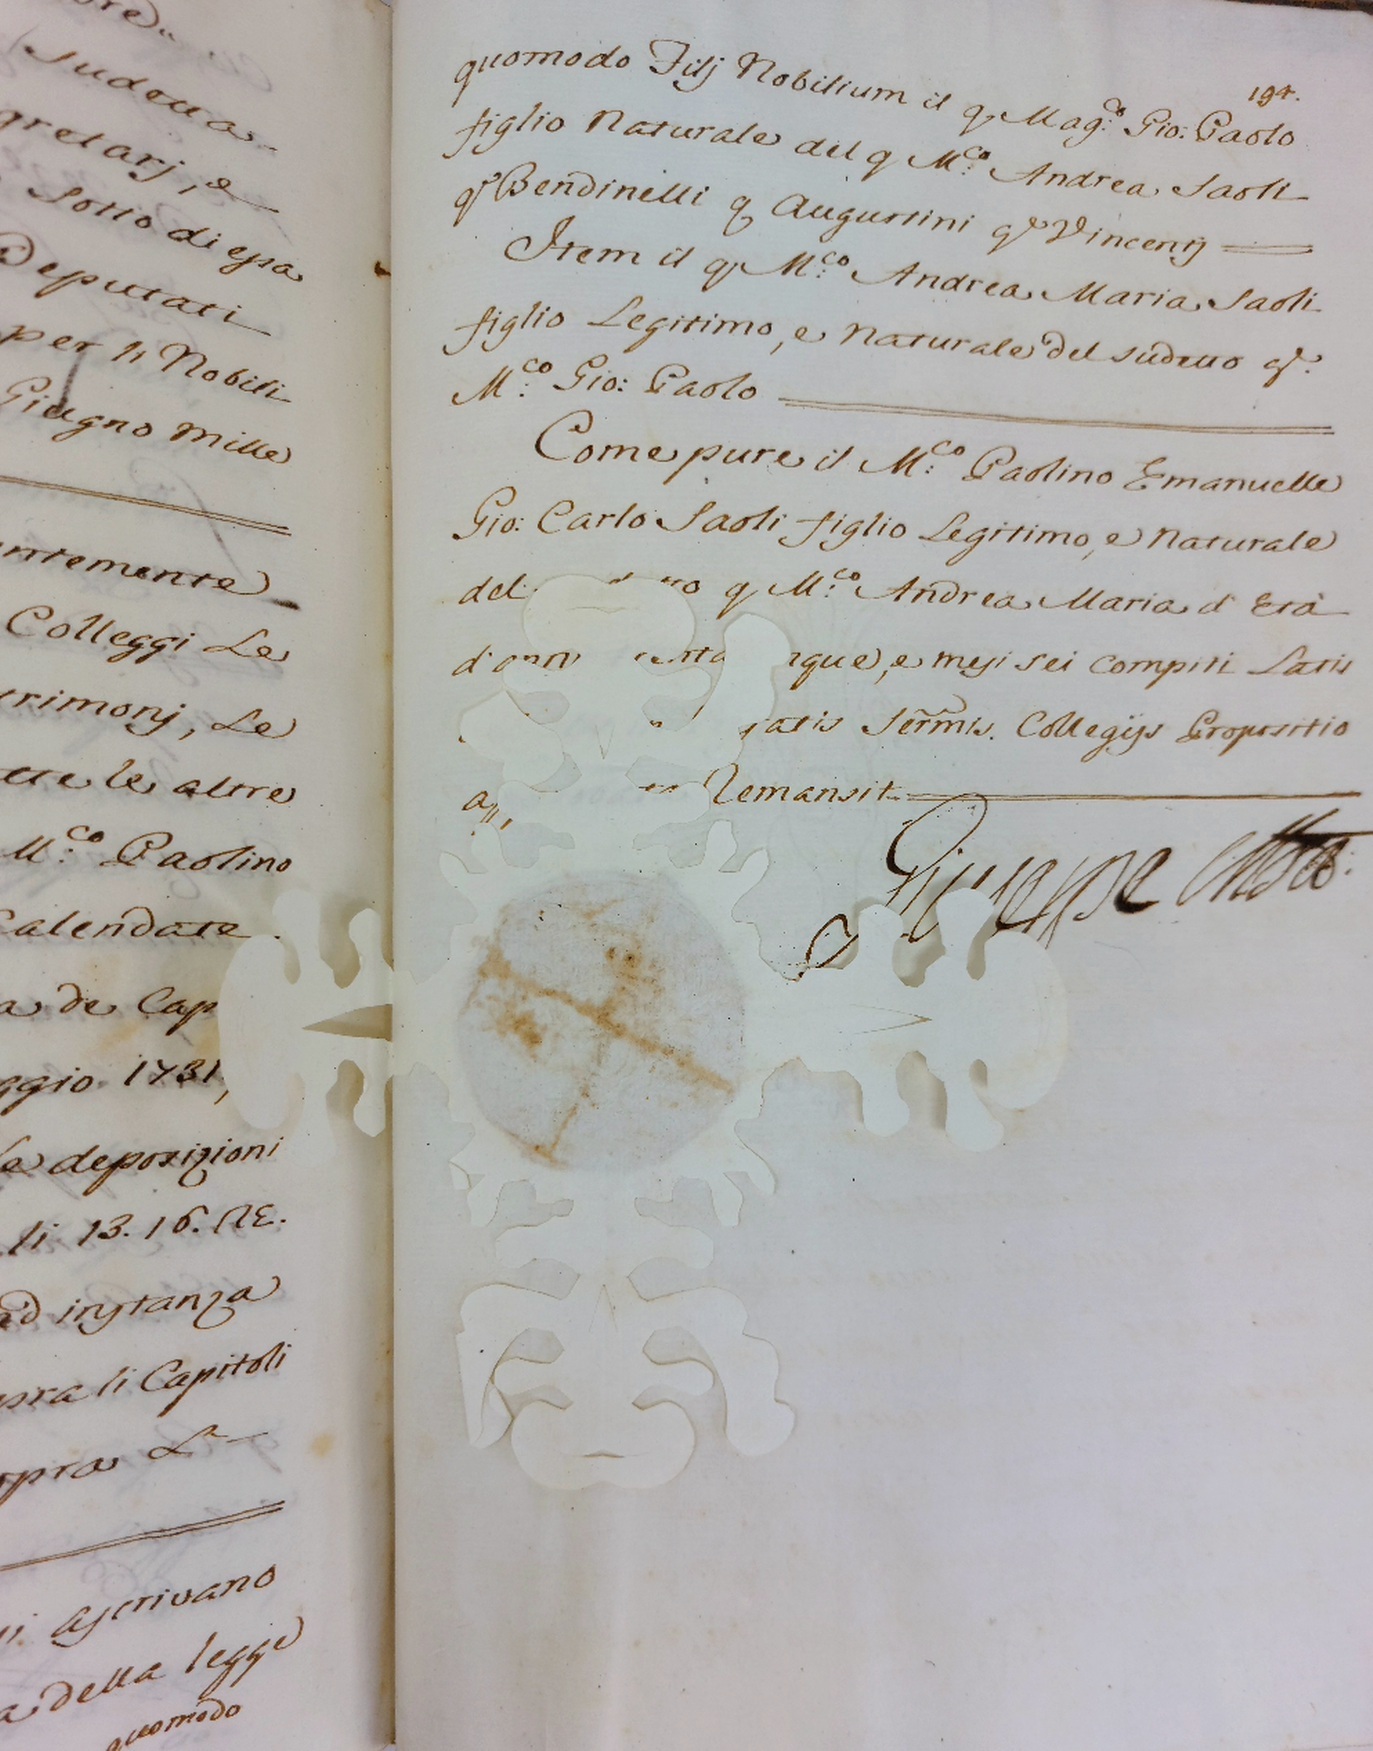 Sudetta
gretarj, e
Sotto di essa
Deputati
per li Nobili
Giugno Mille
ntemente
Colleggi Le
trimonj, Le
tte le altre
M.co Paolino
Calendate
a de Cap
ggio 1731,
le deposizioni
li 13. 16.
ad instanza
pra li Capitoli
opra
ascrivano
a della legge
quomodo
194.
quomodo Filij Nobilium il q. Mag.co Gio: Paolo
figlio Naturale del q M.co Andrea Saoli
q.m Bendinelli q Augustini q.m Vincentij
Item il q. M.co Andrea Maria Saoli
figlio Legitimo, e Naturale del sudetto q.m
M.co Gio: Paolo
Come pure il M.co Paolino Emanuelle
Gio: Carlo Saoli figlio Legitimo, e Naturale
del q M.co Andrea Maria d' Età
d'anni nque, e mesi sei compiti Latis
atis Ser.mis Collegijs Propositio
Remansit
Giuseppe